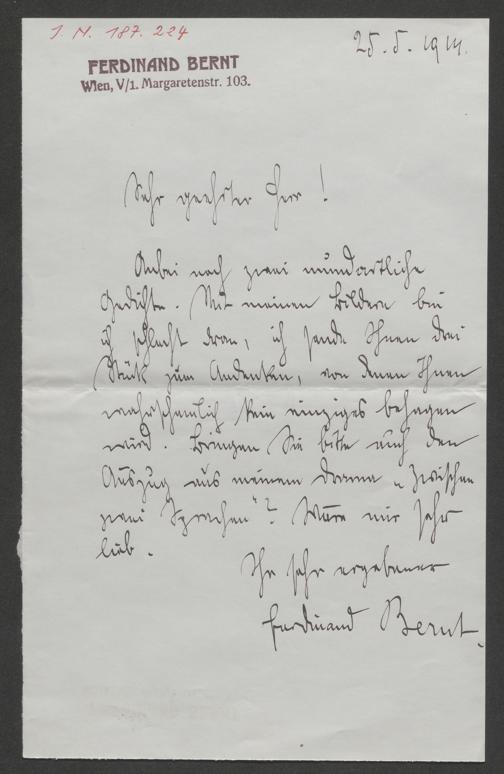 J. N. 187.224
25. 5. 1914.
FERDINAND BERNT
Wien, V/1. Margaretenstr. 103.
Sehr geehrter Herr!
Anbei noch zwei mundartliche
Gedichte. Mit meinen Bildern bin
ich schlecht dran, ich sende Ihnen drei
Stück zum Andenken, von denen Ihnen
wahrscheinlich kein einziges behagen
wird. Bringen Sie bitte auch den
Auszug aus meinem Drama „Zwischen
zwei Sprachen"? Wäre mir sehr
lieb.
Ihr sehr ergebener
Ferdinand Bernt.